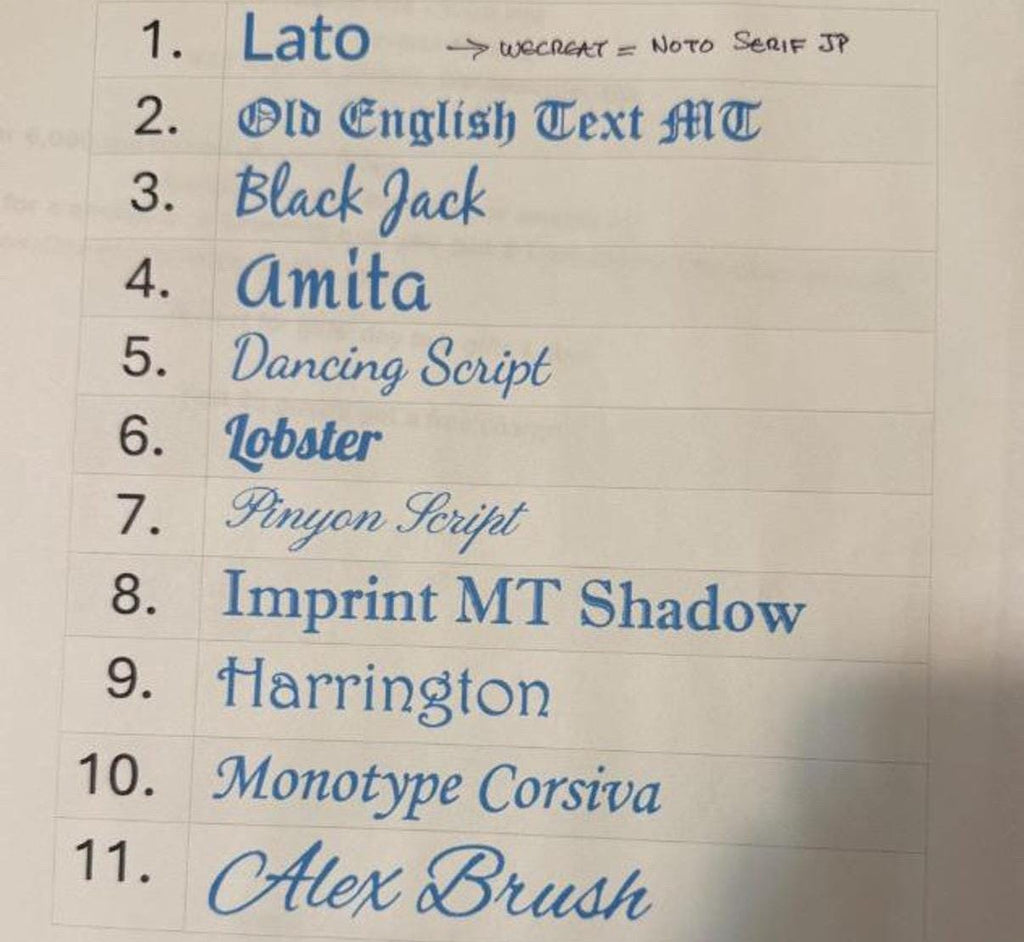 1. Lato → WECREAT = NOTO SERIF JP
2. Old English Text MT
3. Black Jack
4. Amita
5. Dancing Script
6. Lobster
7. Pinyon Script
8. Imprint MT Shadow
9. Harrington
10. Monotype Corsiva
11. Alex Brush